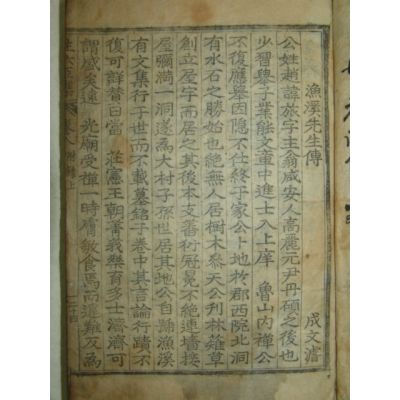 漁溪先生傳
成文濬
公姓趙諱旅字主翁咸安人高麗元尹丹碩之後也
少習擧子業能文章中進士入上庠 魯山內禪公
不復應擧因隱不仕終于家公卜地於郡西院北洞
有水石之勝始也絶無人居樹木參天公刋林薙草
創立屋宇而居之其後本支蕃衍冠冕不絶連墻接
屋彌滿一洞遂爲大村子孫世居其地公自號漁溪
有文集行于世而不載墓銘子卷中其言論行蹟不
復可詳昔日當 莊憲王朝菁莪樂育多士濟濟可
謂盛矣逮 光廟受禪一時膚敏食焉而避難反爲
附錄上